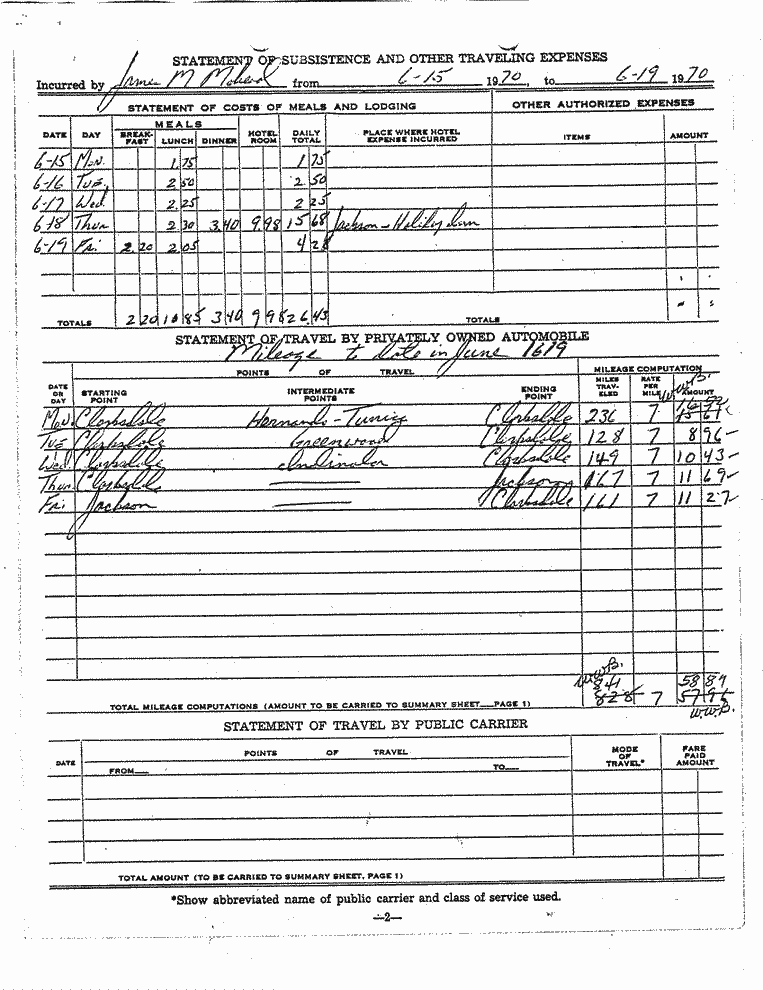 STATEMENT OF SUBSISTENCE AND OTHER TRAVELING EXPENSES
Incurred by James M from 6-15 1970, to 6-19 1970
STATEMENT OF COSTS OF MEALS AND LODGING OTHER AUTHORIZED EXPENSES
DATE DAY MEALS BREAK-FAST LUNCH DINNER HOTEL ROOM DAILY TOTAL PLACE WHERE HOTEL EXPENSE INCURRED ITEMS AMOUNT
6-15 Mon. 1 75 1 75
6-16 Tue. 2 50 2 50
6-17 Wed 2 25 2 25
6-18 Thur 2 30 3.40 9.98 15 68 Jackson - Holiday Inn
6-19 Fri. 2.20 2 05 4 25
TOTALS 2 20 10 85 3 40 9 98 26.43 TOTALS
STATEMENT OF TRAVEL BY PRIVATELY OWNED AUTOMOBILE
Mileage to date in June 1619
POINTS OF TRAVEL MILEAGE COMPUTATION
DATE OR DAY STARTING POINT INTERMEDIATE POINTS ENDING POINT MILES TRAV-ELED RATE PER MILE AMOUNT
W.W.B.
Mon. Clarksdale Hernando - Tunica Clarksdale 236 7 16 52
Tue Clarksdale Greenwood Clarksdale 128 7 8 96
Wed. Clarksdale Indianola Clarksdale 149 7 10 43
Thur Clarksdale Jackson 167 7 11 69
Fri. Jackson Clarksdale 161 7 11 27
W.W.B.
841 58 87
TOTAL MILEAGE COMPUTATIONS (AMOUNT TO BE CARRIED TO SUMMARY SHEET—PAGE 1) 828 7 57 96
W.W.B.
STATEMENT OF TRAVEL BY PUBLIC CARRIER
DATE POINTS OF TRAVEL MODE OF TRAVEL* FARE PAID AMOUNT
FROM— TO—
TOTAL AMOUNT (TO BE CARRIED TO SUMMARY SHEET, PAGE 1)
*Show abbreviated name of public carrier and class of service used.
—2—